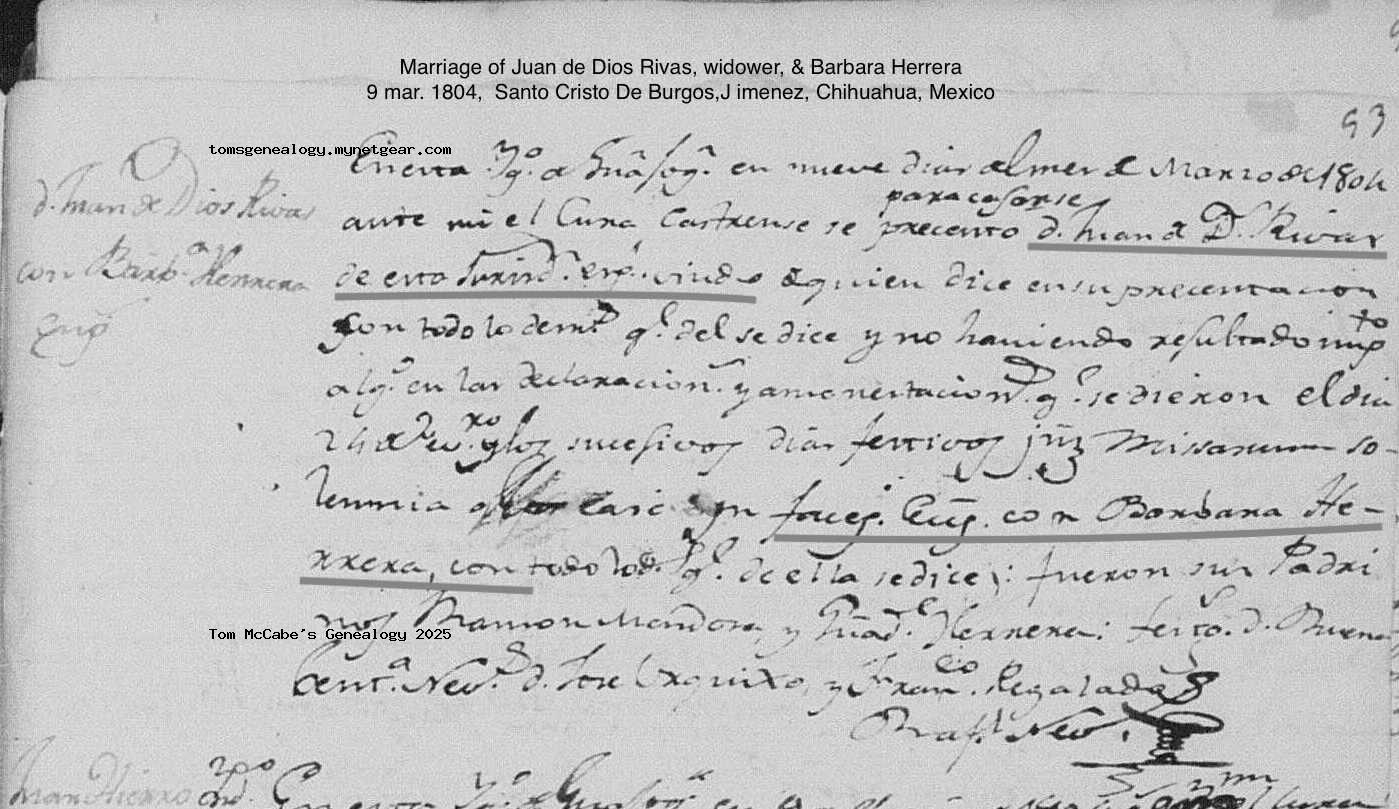 Marriage of Juan de Dios Rivas, widower, & Barbara Herrera
9 mar. 1804, Santo Cristo De Burgos,J imenez, Chihuahua, Mexico
93
tomsgenealogy.mynetgear.com
d. Juan de Dios Rivas
con Barb.a Herrera
En esta Yg.a de en nueve dias del mes de Marzo de 1804
para casarse
ante mi el Cura Castrense se precento d. Juan de D.s Rivas
de esta Jurisd.n esp.l viudo de quien dice en su precentacion
con todo lo demas q.e del se dice y no haviendo resultado imp.to
alg.o en las declaracion.s y amonestacion.s q.e se dieron el dia
24 de y los sucesivos dias festivos Missarum so-
lemnia case con Barbara He-
rrera, con todo lo q.e de ella se dice; fueron sus Padri
nos Ramon Mendosa y Herrera: d. Buena
bent.a Nev.s d. Jose Urquixo, y Fran.co Regalado
Tom McCabe's Genealogy 2025
Raf.l Nev.s
Juan Hierro
En esta Yg.a de